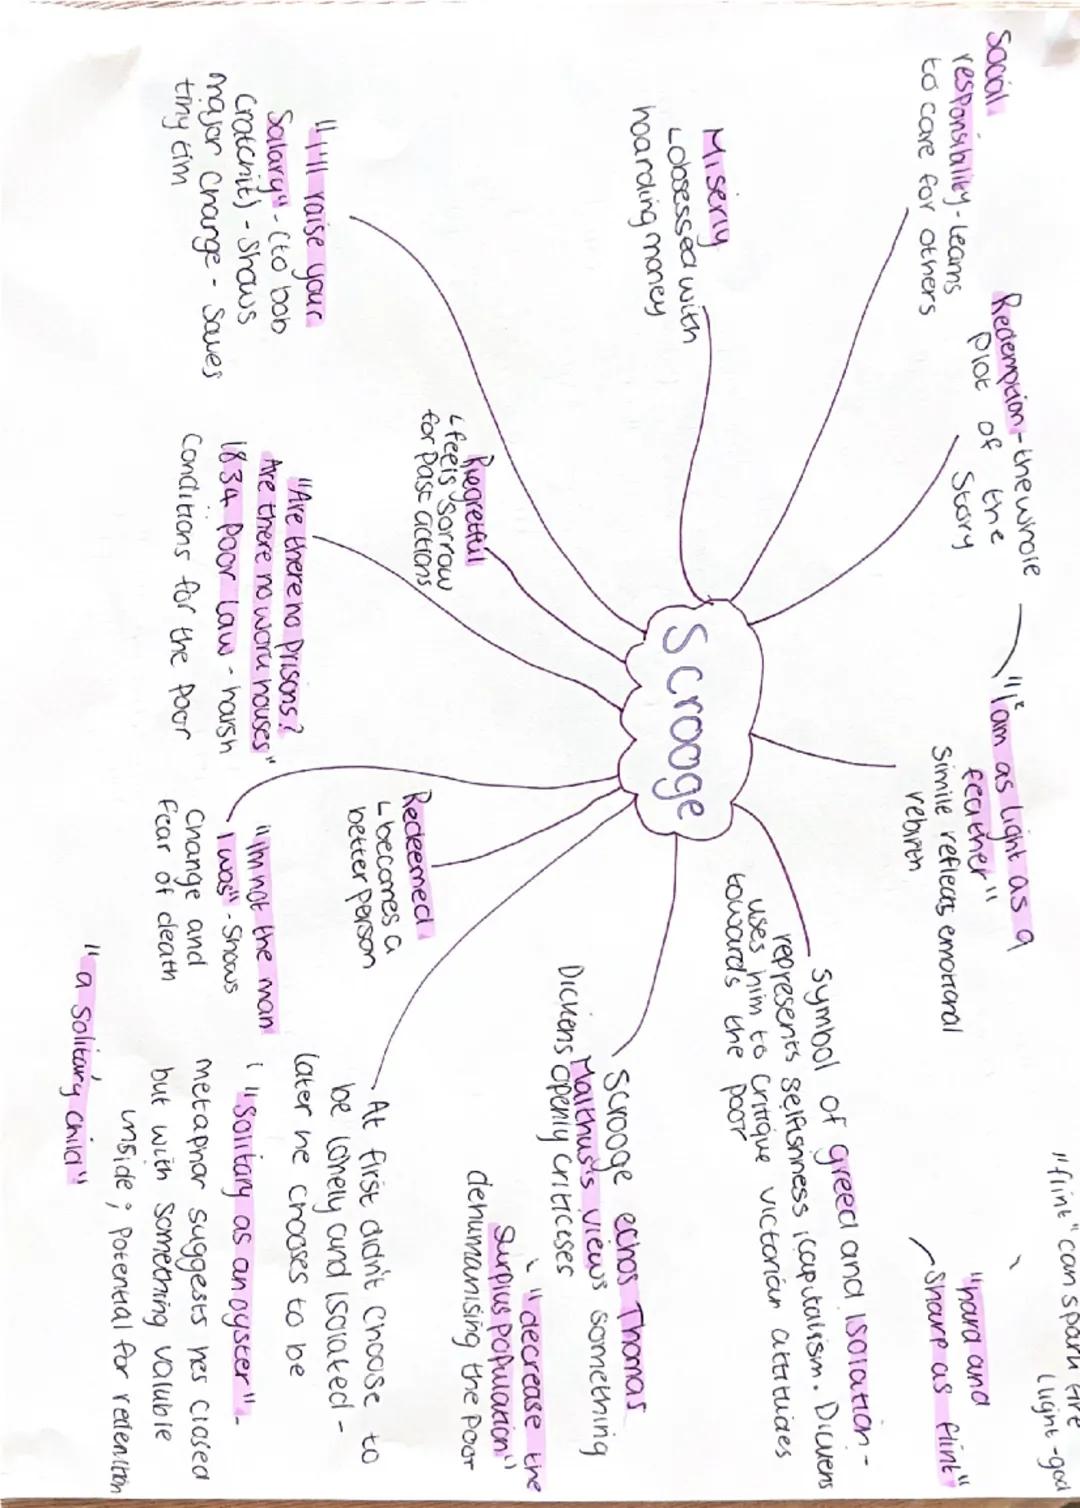 Social
responsibility - learns
to care for others
Redemption - the whole
plot of the
story
"I am as light as a
feather"
simile reflects emotional
rebirth
"flint" can spark fire
light - god
"hard and
sharp as flint"
Miserly
obsessed with
hoarding money
Scrooge
symbol of greed and isolation -
represents selfishness, capitalism. Dickens
uses him to critique victorian attitudes
towards the poor
Scrooge echos Thomas
Malthus's views something
Dickens openly criticeses
"decrease the
surplus population"
dehumanising the poor
Regretful
feels sorrow
for past actions
Redeemed
becomes a
better person
At first didn't choose to
be lonely and isolated -
later he chooses to be
"I'll raise your
salary" - (to bob
cratchit) - shows
major change - saves
tiny tim
"Are there no prisons?
Are there no work houses"
1834 poor law - harsh
conditions for the poor
"Im not the man
I was" - shows
change and
fear of death
"solitary as an oyster" -
metaphor suggests hes closed
but with something valuble
inside; potential for
"a solitary child"